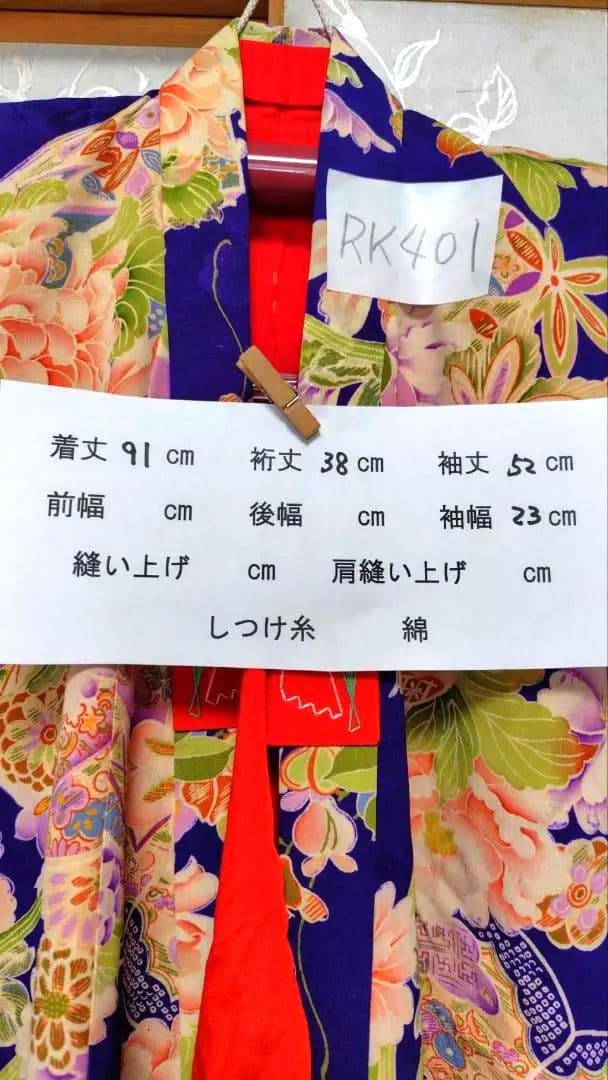 RK401
着丈 91 cm 裄丈 38 cm 袖丈 52 cm
前幅 cm 後幅 cm 袖幅 23 cm
縫い上げ cm 肩縫い上げ cm
しつけ糸 綿